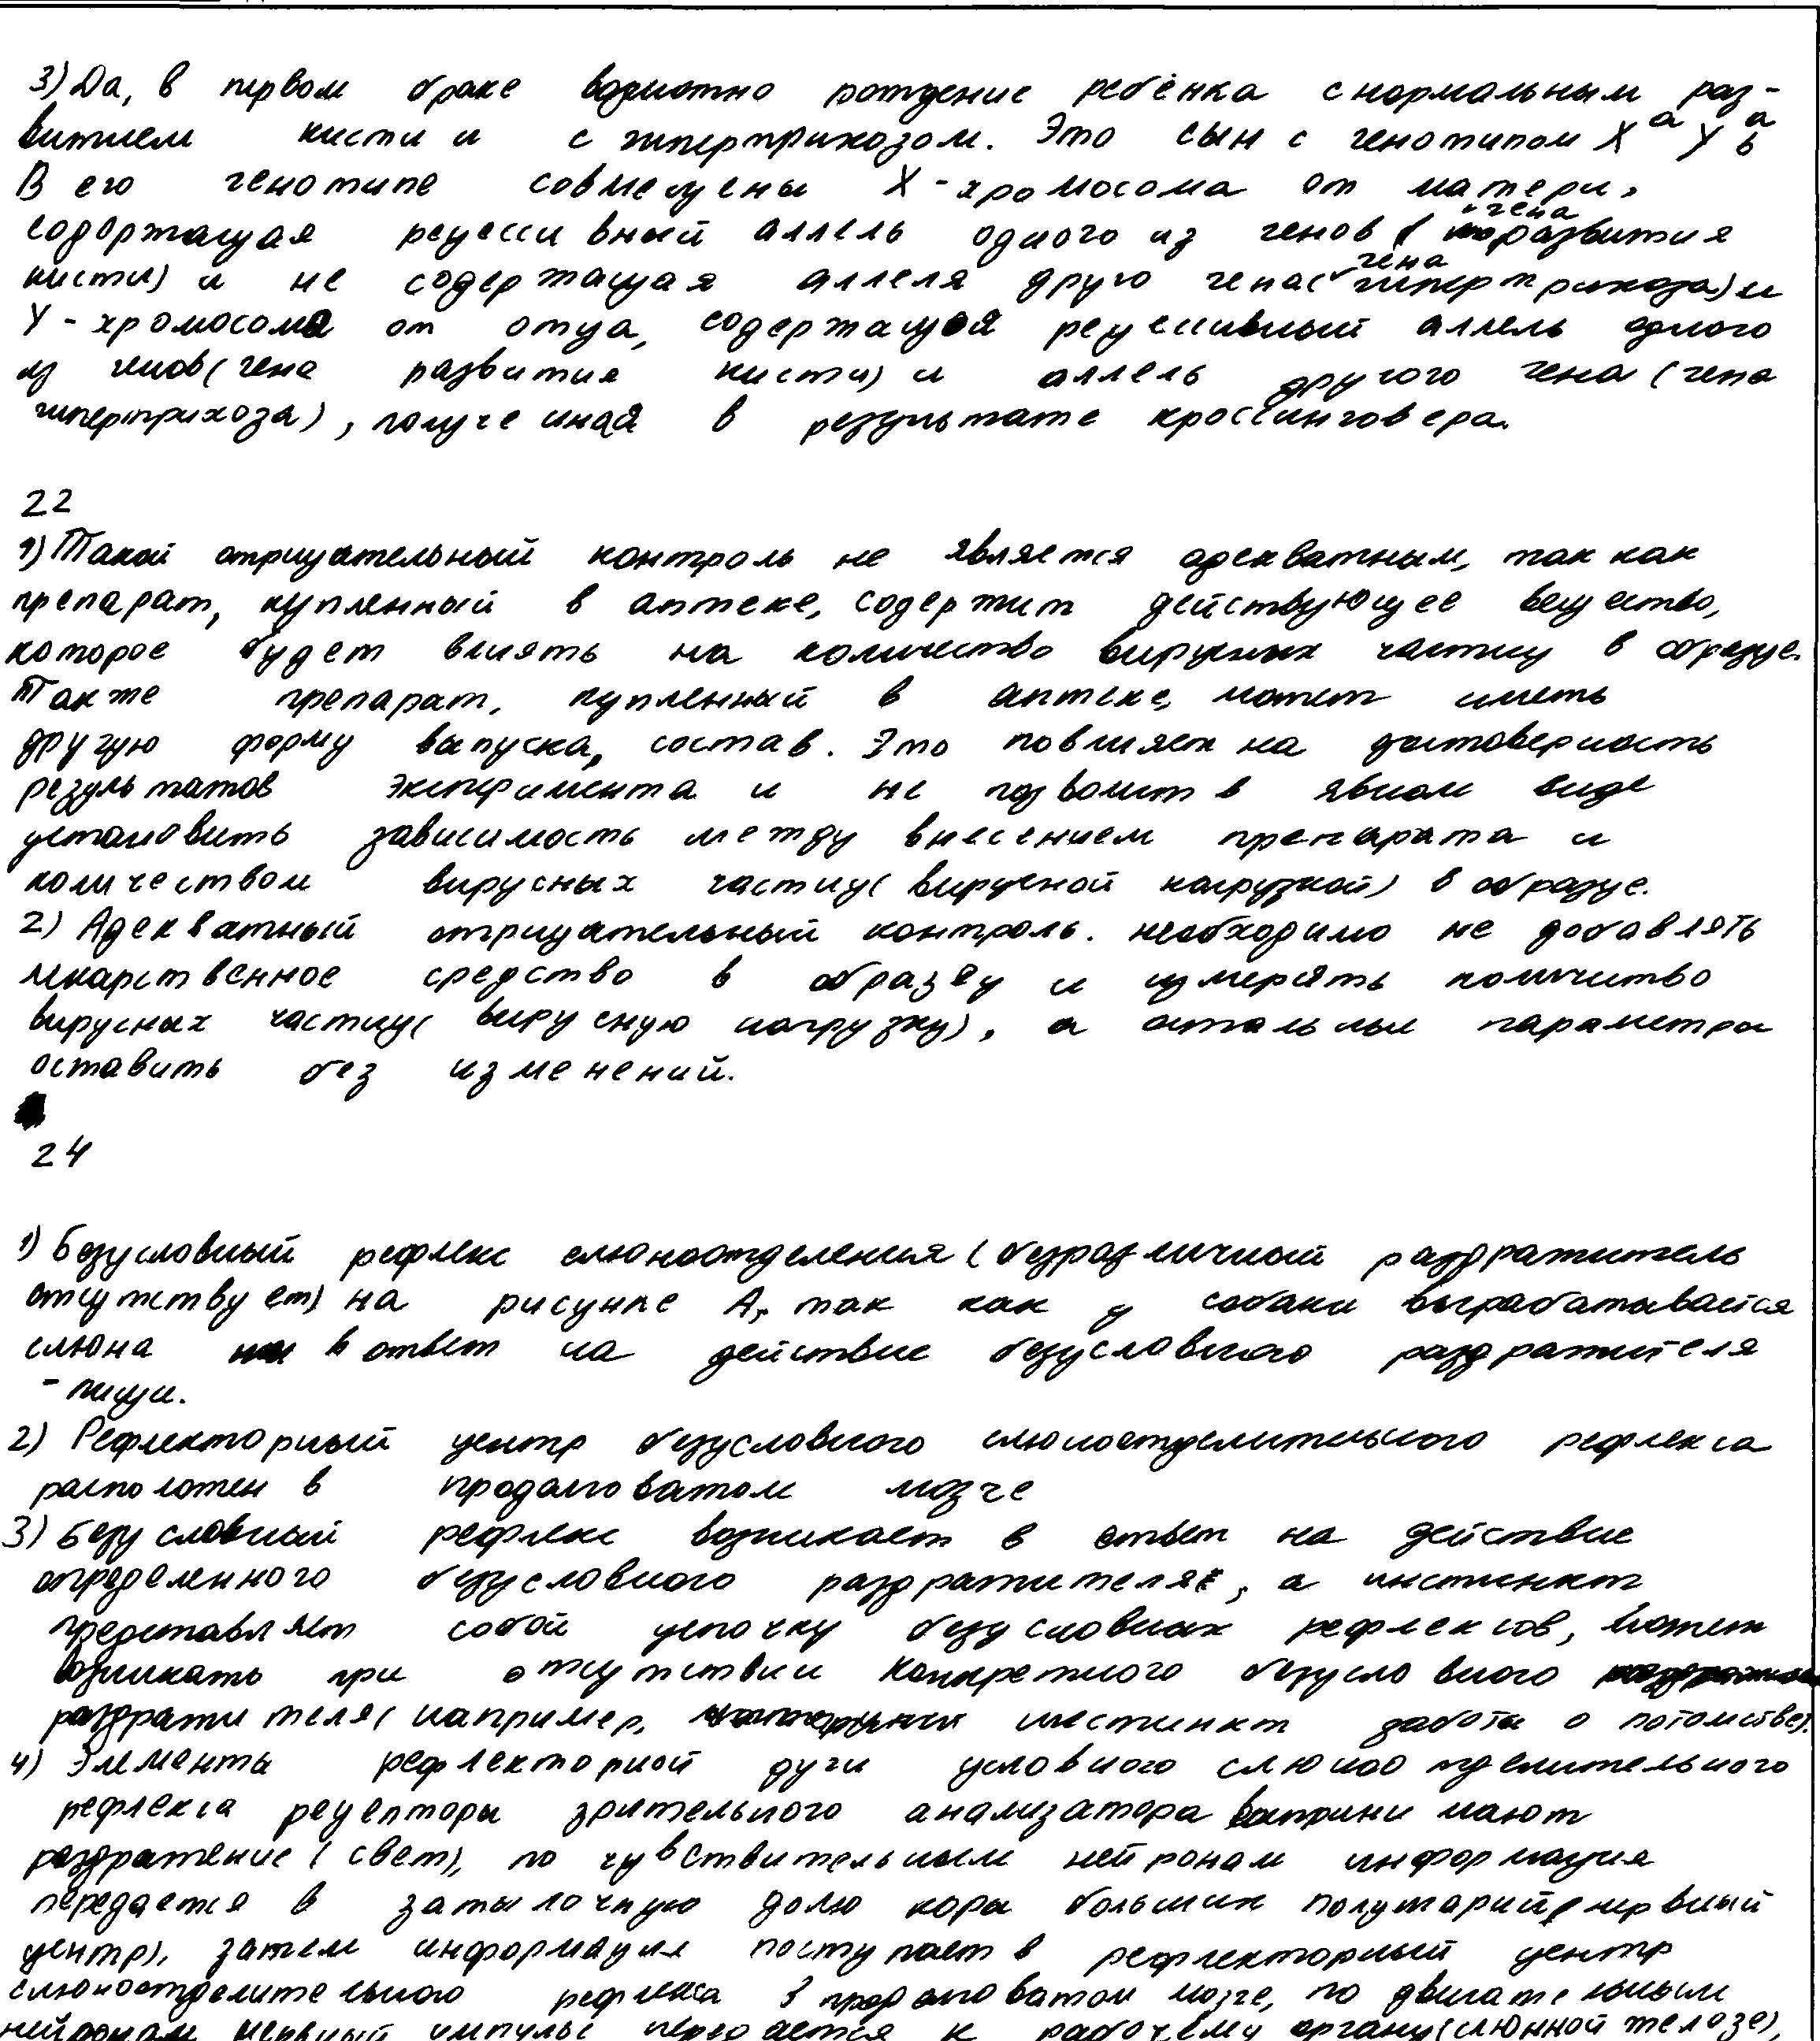 3) Да, в первом браке вероятно рождение ребёнка с нормальным раз-
витием кисти и с гипертрихозом. Это сын с генотипом XᵃYᵃb
В его генотипе совмещены X-хромосома от матери,
содержащая рецессивный аллель одного из генов (гена развития
кисти) и не содержащая аллеля друго гена (гена гипертрихоза) и
Y-хромосома от отца, содержащая рецессивный аллель одного
из генов (гена развития кисти) и аллель другого гена (гена
гипертрихоза), полученная в результате кроссинговера.
22
1) Такой отрицательный контроль не является адекватным, так как
препарат, купленный в аптеке, содержит действующее вещество,
которое будет влиять на количество вирусных частиц в образце.
Также препарат, купленный в аптеке, может иметь
другую форму выпуска, состав. Это повлияет на достоверность
результатов эксперимента и не позволит в явном виде
установить зависимость между внесением препарата и
количеством вирусных частиц (вирусной нагрузкой) в образце.
2) Адекватный отрицательный контроль. необходимо не добавлять
лекарственное средство в образец и измерять количество
вирусных частиц (вирусную нагрузку), а остальные параметры
оставить без изменений.
24
1) Безусловный рефлекс слюноотделения (безразличный раздражитель
отсутствует) на рисунке А, так как у собаки вырабатывается
слюна в ответ на действие безусловного раздражителя
- пищи.
2) Рефлекторный центр безусловного слюноотделительного рефлекса
расположен в продолговатом мозге
3) Безусловный рефлекс возникает в ответ на действие
определенного безусловного раздражителя, а инстинкт
представляет собой цепочку безусловных рефлексов, может
возникать при отсутствии конкретного безусловного
раздражителя (например, инстинкт заботы о потомстве).
4) Элементы рефлекторной дуги условного слюноотделительного
рефлекса рецепторы зрительного анализатора воспринимают
раздражение (свет), по чувствительным нейронам информация
передается в затылочную долю коры больших полушарий (нервный
центр), затем информация поступает в рефлекторный центр
слюноотделительного рефлекса в продолговатом мозге, по двигательным
нейронам нервный импульс передается к рабочему органу (слюнной железе),